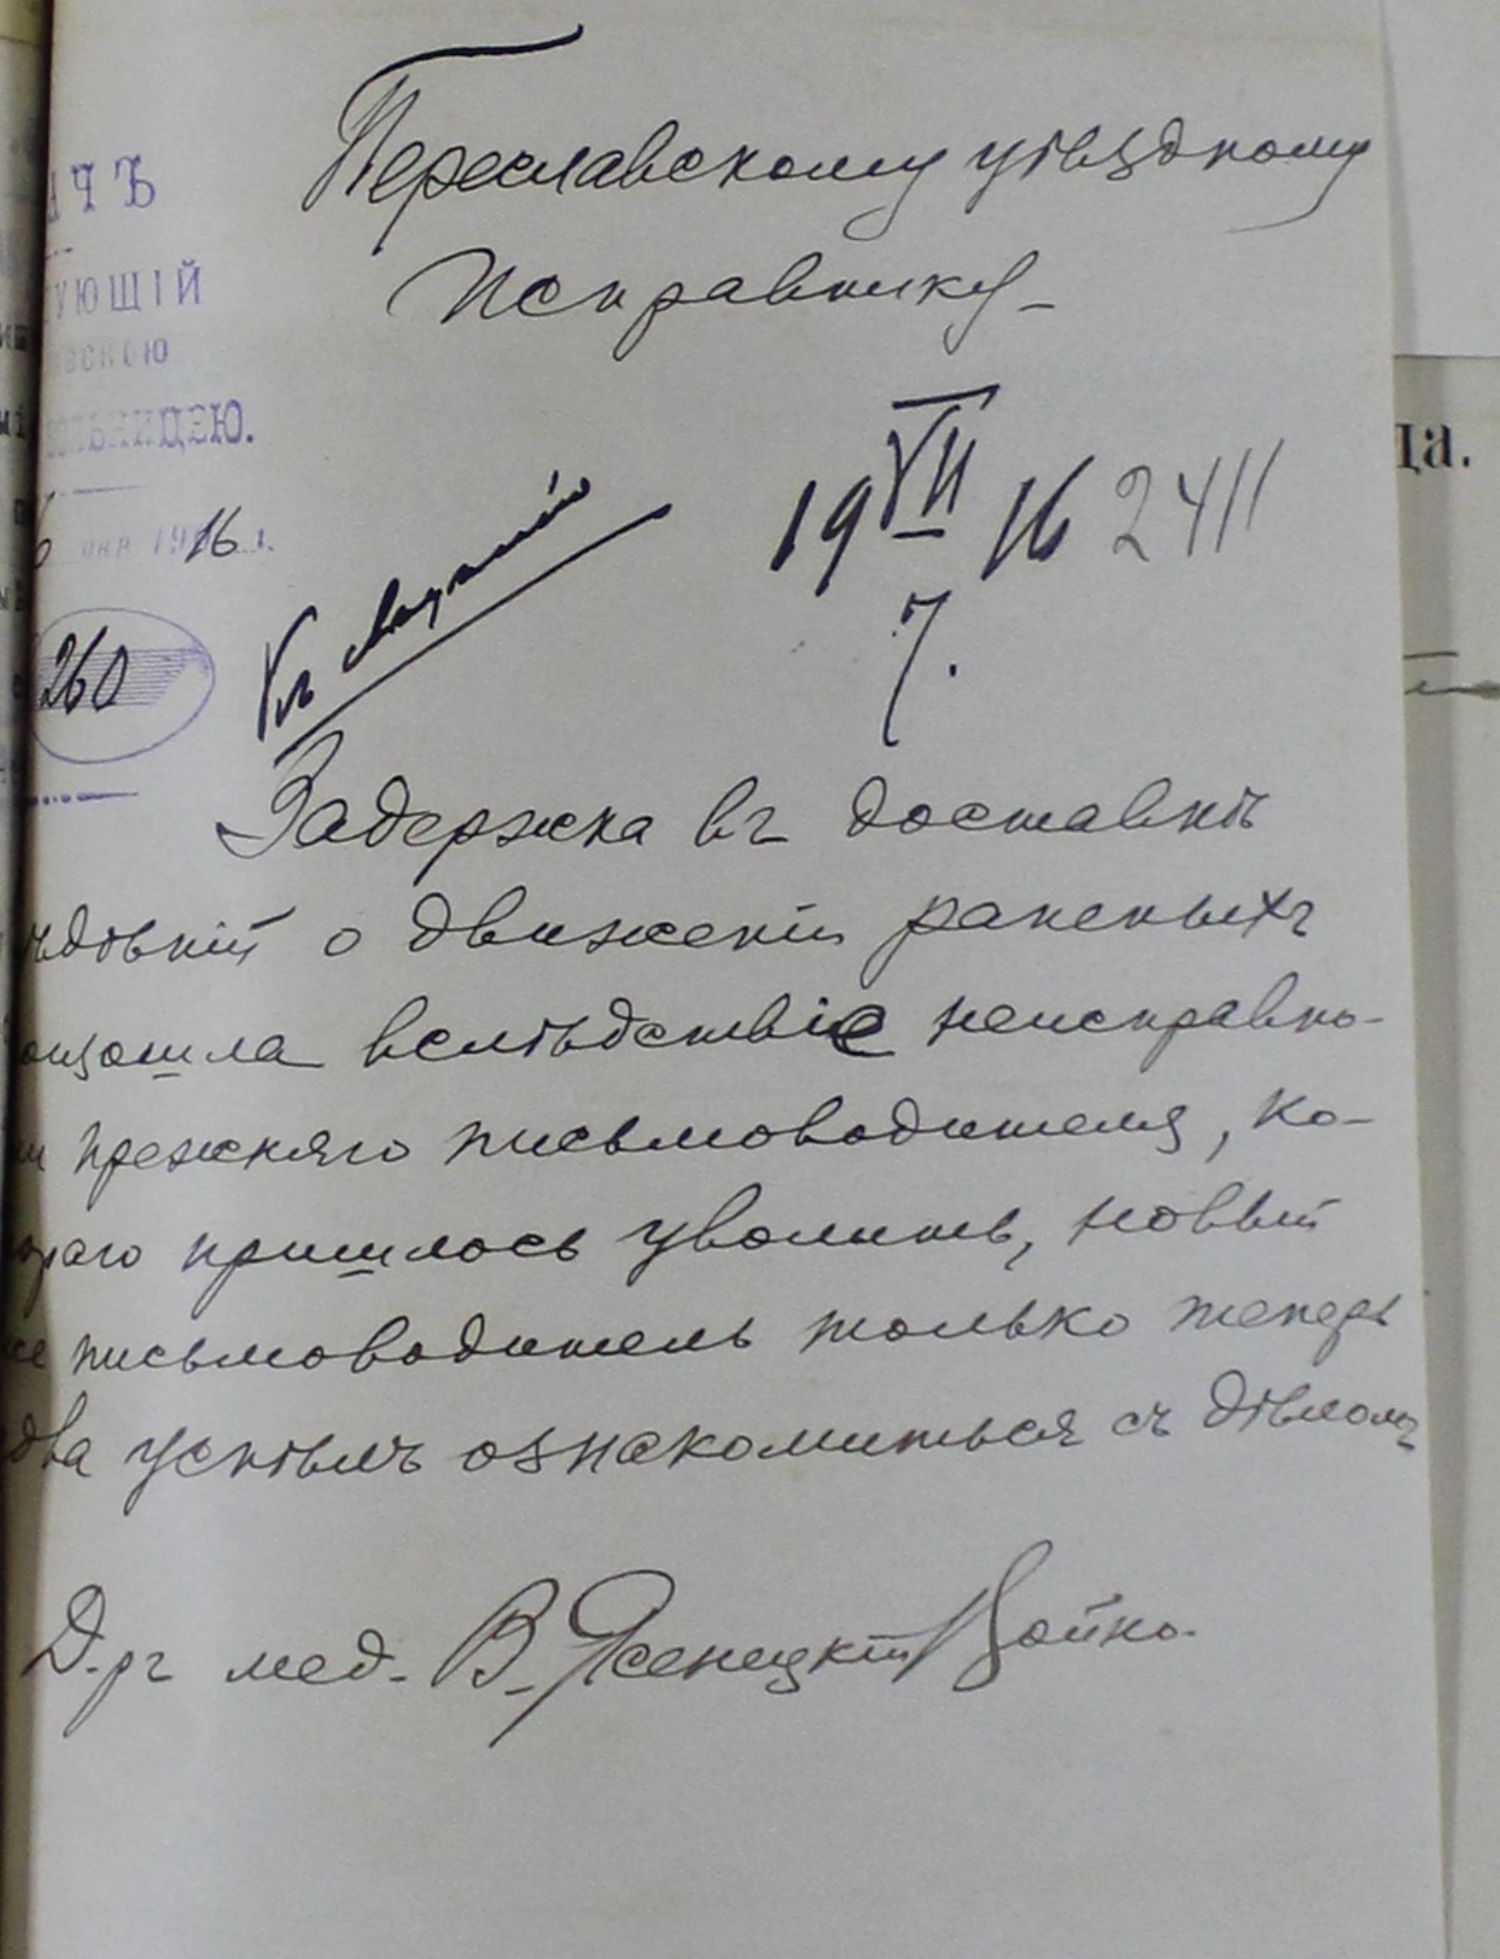 Переславскому уѣздному
Исправнику
АЧЪ
УЮЩІЙ
ВСКОЮ
ОЛЬНИЦЕЮ.
16 г.
260
19 VII 16 2411
7.
Къ свѣдѣнію
Задержка въ доставкѣ
ѣдѣній о движеніи раненыхъ
оизошла вслѣдствіе неисправно-
и прежняго письмоводителя, ко-
ораго пришлось уволить, новый
же письмоводитель только теперь
два успѣлъ ознакомиться съ дѣломъ
Д-ръ мед. В. Ясенецкій Войно.
да.